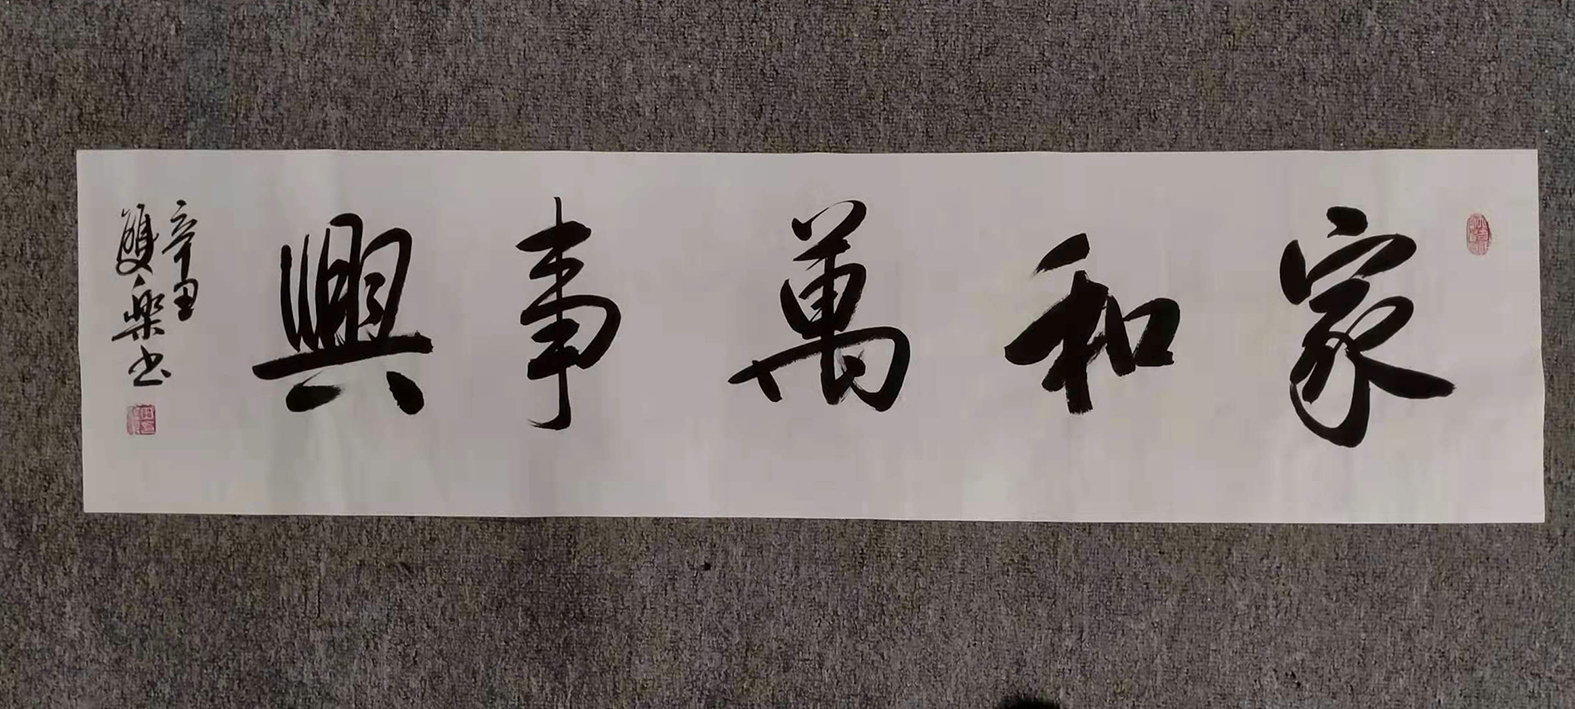 家和萬事興
辛丑
雙樂书